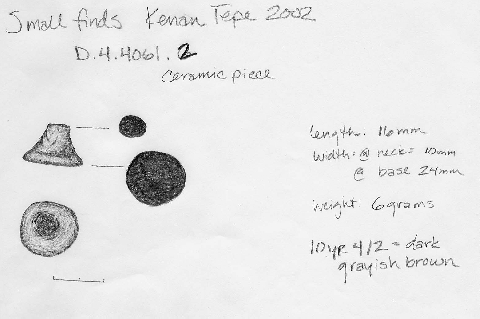 Small finds Kenan Tepe 2002
D.4.4061.2
Ceramic piece
length. 16mm
width: @ neck = 10mm
@ base 24mm
weight 6 grams
10 yr 4/2 = dark
grayish brown